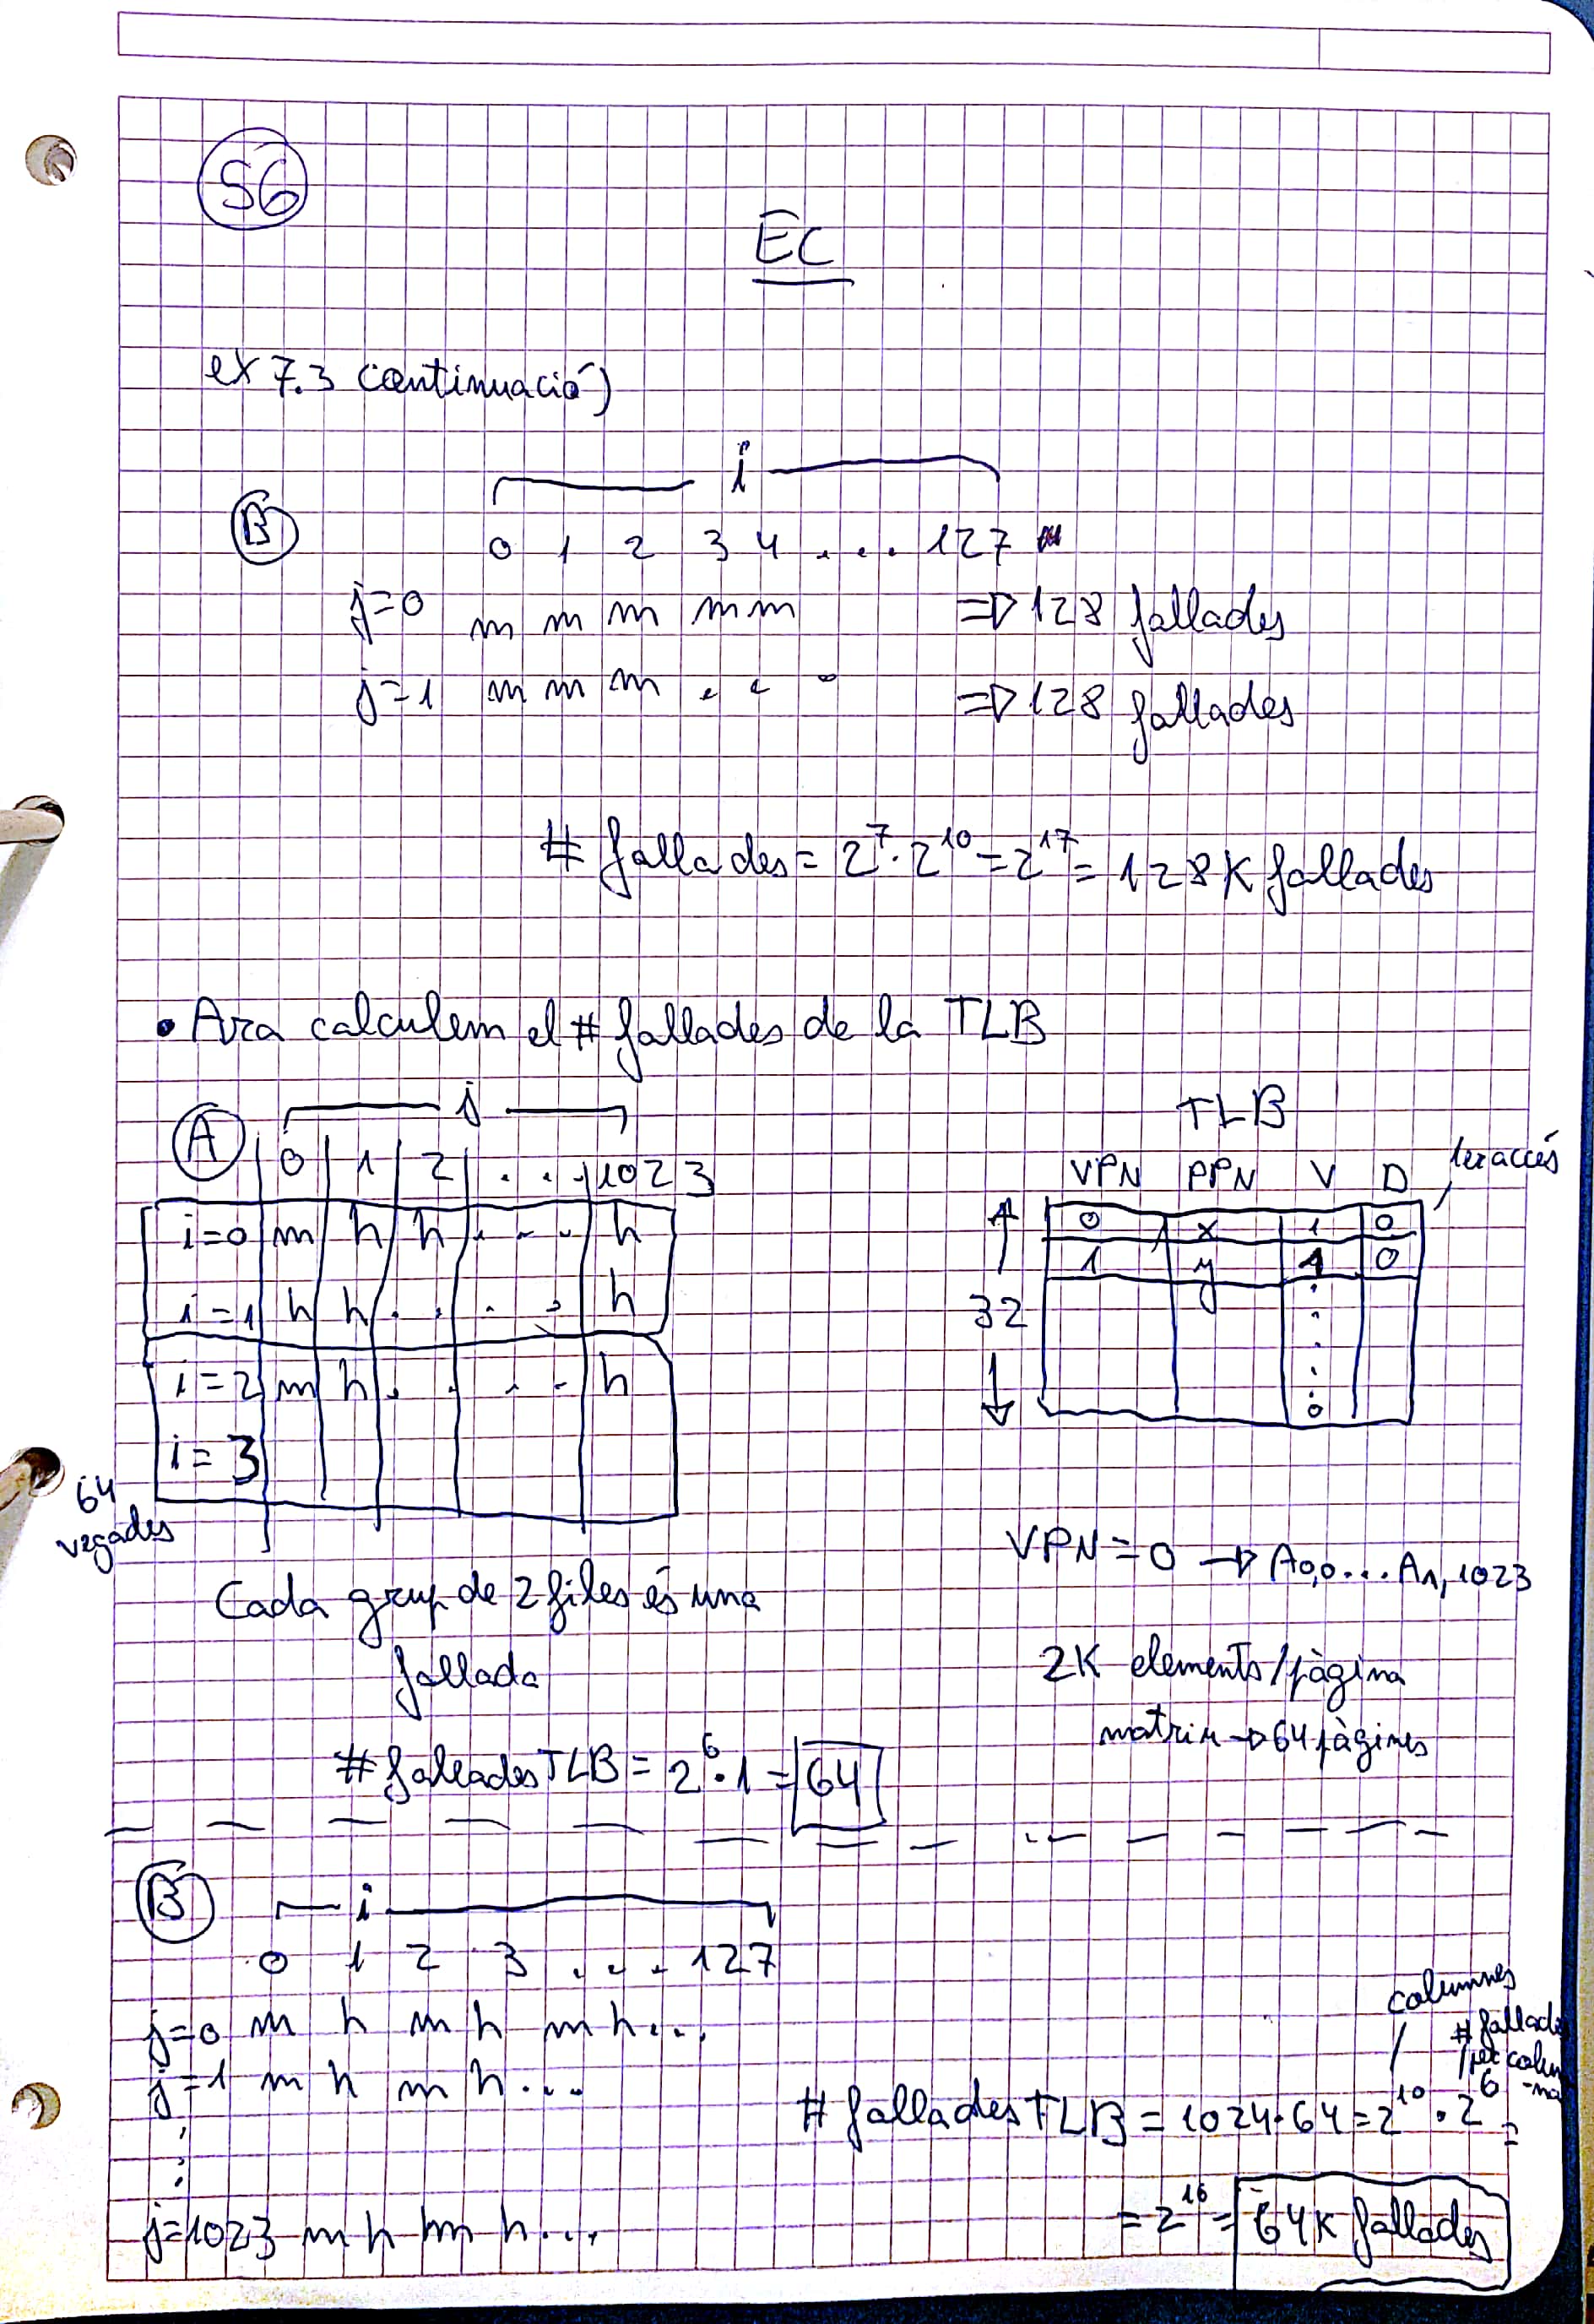 S6
EC
ex 7.3 continuació)
i
B
0 1 2 3 4 ... 127
j=0 m m m m m => 128 fallades
j=1 m m m ... => 128 fallades
# fallades = 2^7 · 2^10 = 2^17 = 128K fallades
• Ara calculem el # fallades de la TLB
A
j
0 1 2 ... 1023
i=0 m h h ... h
i=1 h h .... h
i=2 m h .... h
i=3
64
vegades
Cada grup de 2 files és una
fallada
# fallades TLB = 2^6 · 1 = 64
TLB
1er accés
VPN PPN V D
0 x 1 0
1 y 1 0
32
0
VPN = 0 -> A0,0...A1,1023
2K elements/pàgina
matriu -> 64 pàgines
B
i
0 1 2 3 ... 127
j=0 m h m h m h...
j=1 m h m h...
j=1023 m h m h...
columnes
# fallades
/per colum
-na
# fallades TLB = 1024·64 = 2^10 · 2^6 =
= 2^16 = 64K fallades